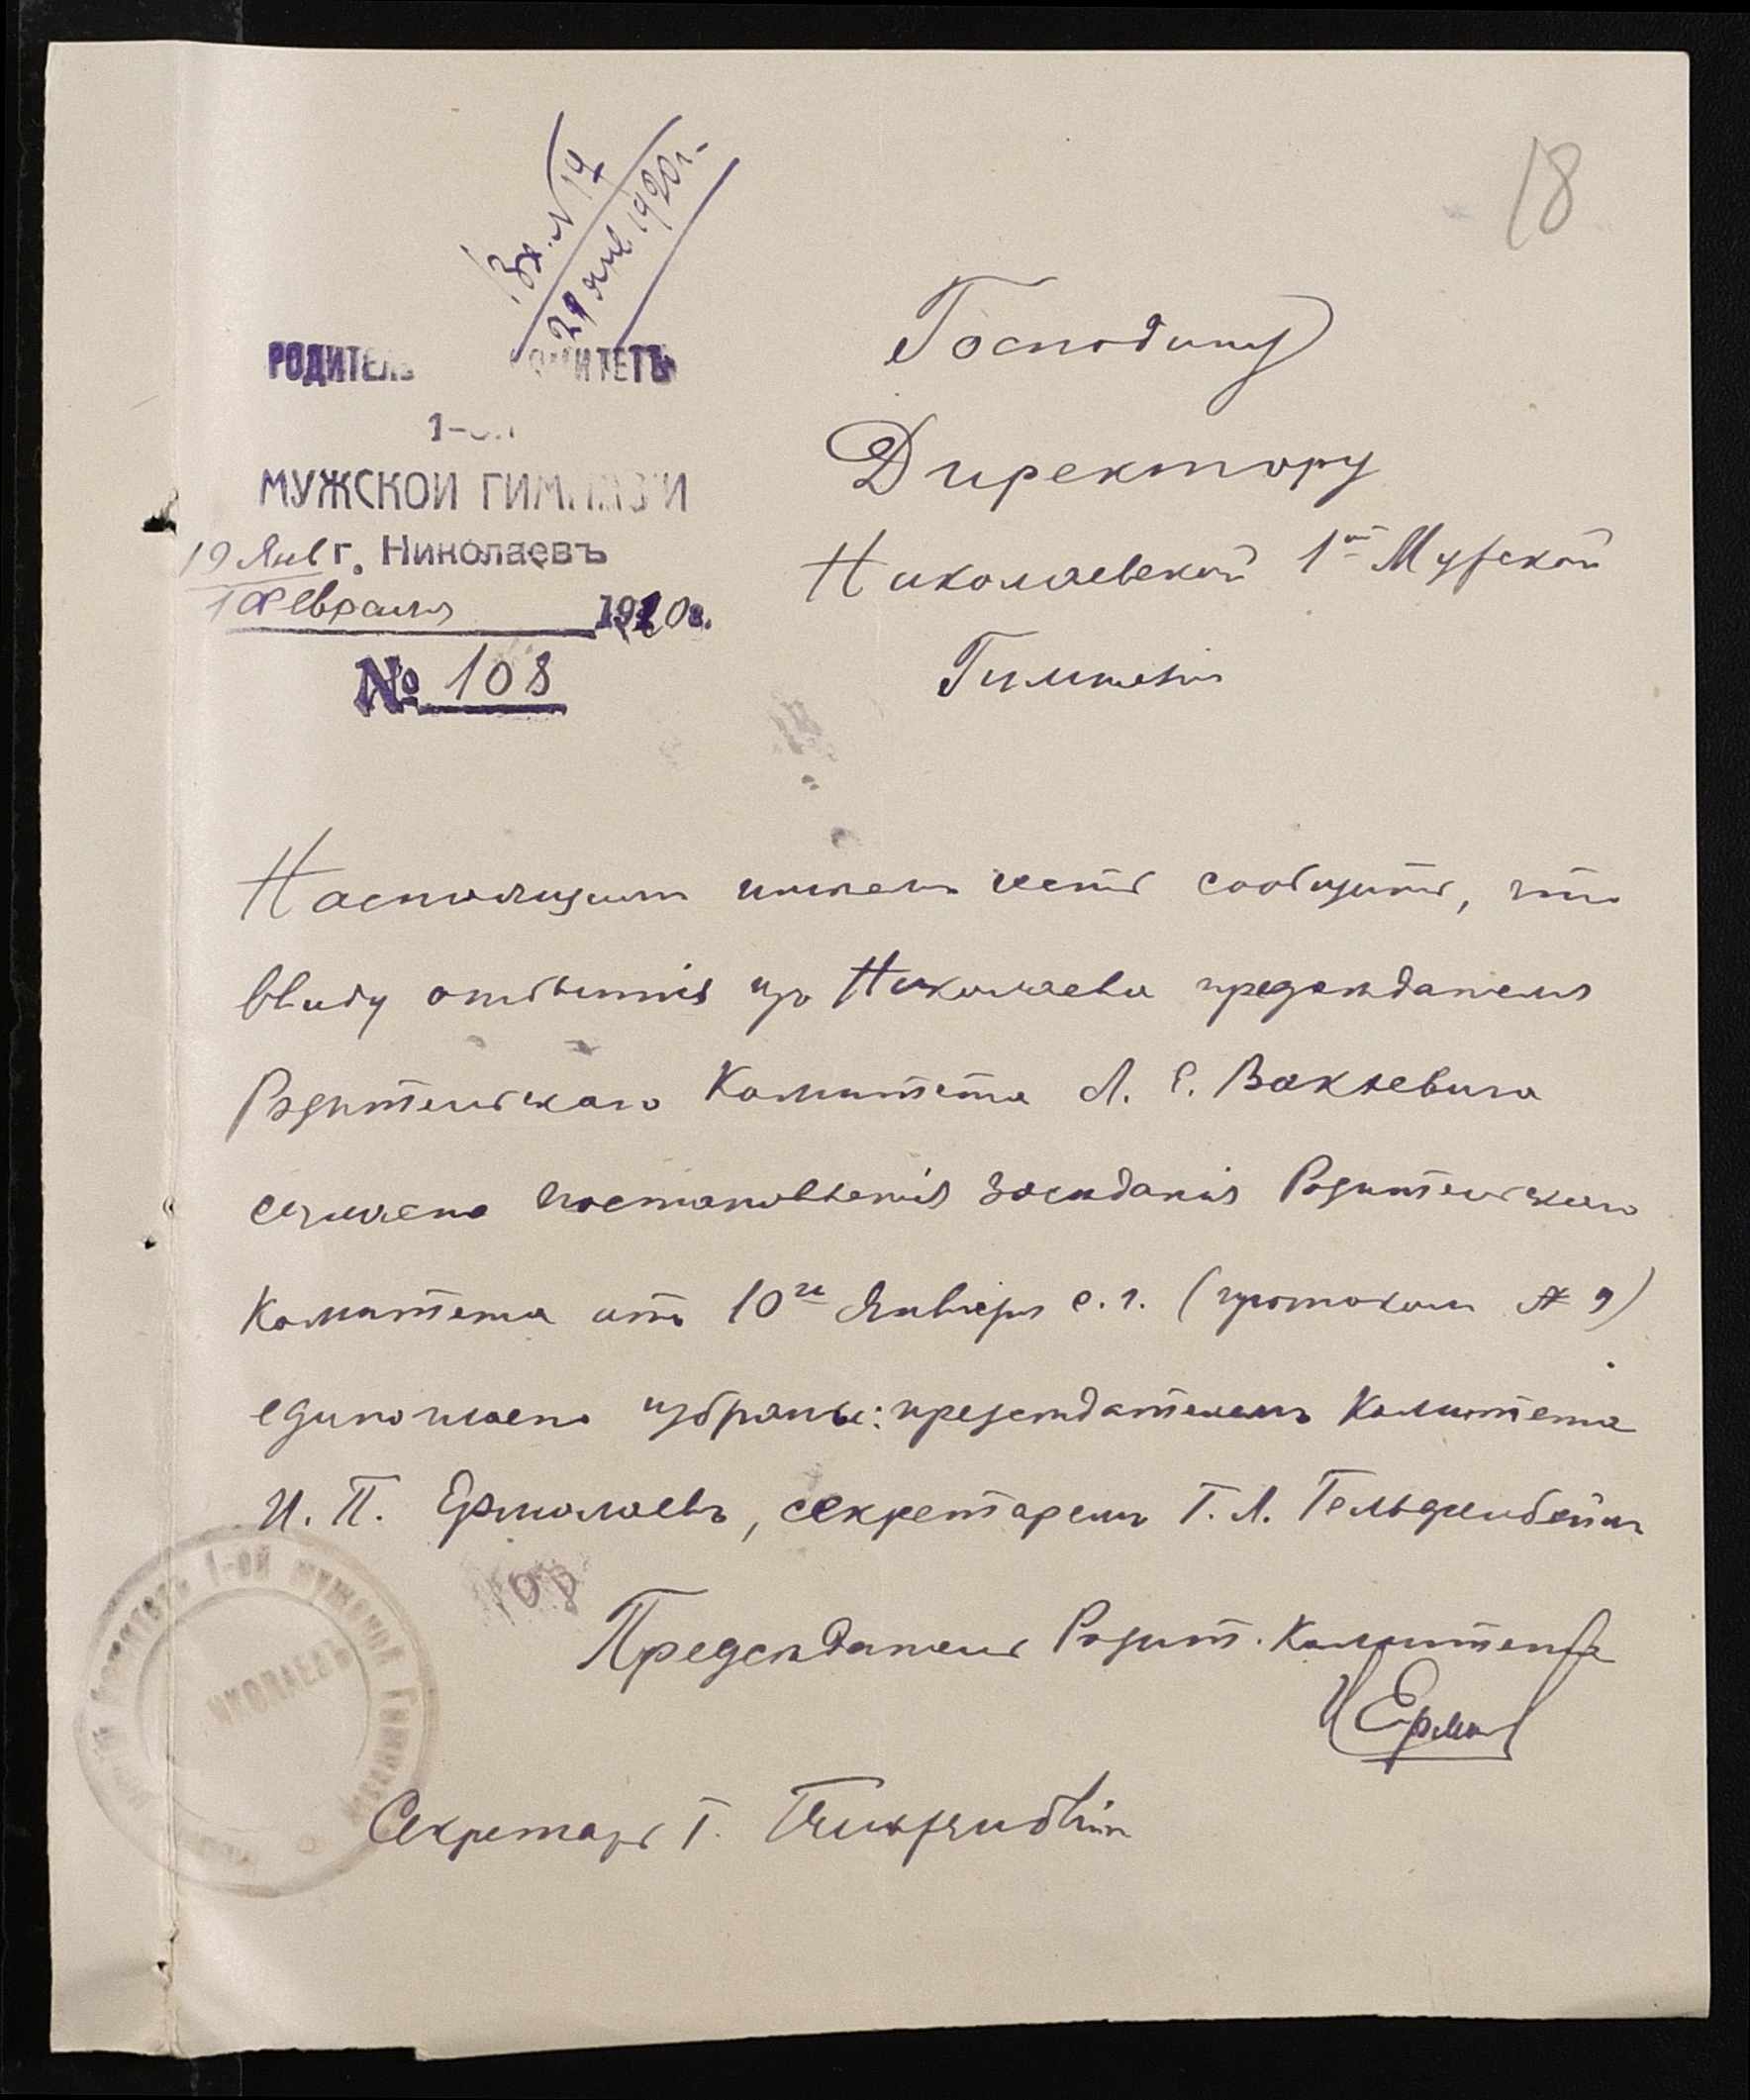 18
Вх. № 14
21 янв 1920 г.
РОДИТЕЛЬ КОМИТЕТЪ
1-ой
МУЖСКОЙ ГИМНАЗІИ
19 Янв г. Николаевъ
1 Февраля 1920 г.
№ 108
Господину
Директору
Николаевской 1ой Мужской
Гимназіи
Настоящимъ имѣемъ честь сообщить, что
ввиду отбытія изъ Николаева предсѣдателя
Родительскаго Комитета Л. Е. Вакѣевича
согласно постановленія засѣданія Родительскаго
Комитета отъ 10го Января с. г. (протоколъ № 9)
единогласно избраны: предсѣдателемъ Комитета
И. П. Ермолаевъ, секретаремъ Г. Л. Гельфенбейнъ
108
Предсѣдатель Родит. Комитета
И Ермол
Секретарь Г. Гельфенбейн
Комитетъ 1-ой мужской Гимназіи
НИКОЛАЕВЪ